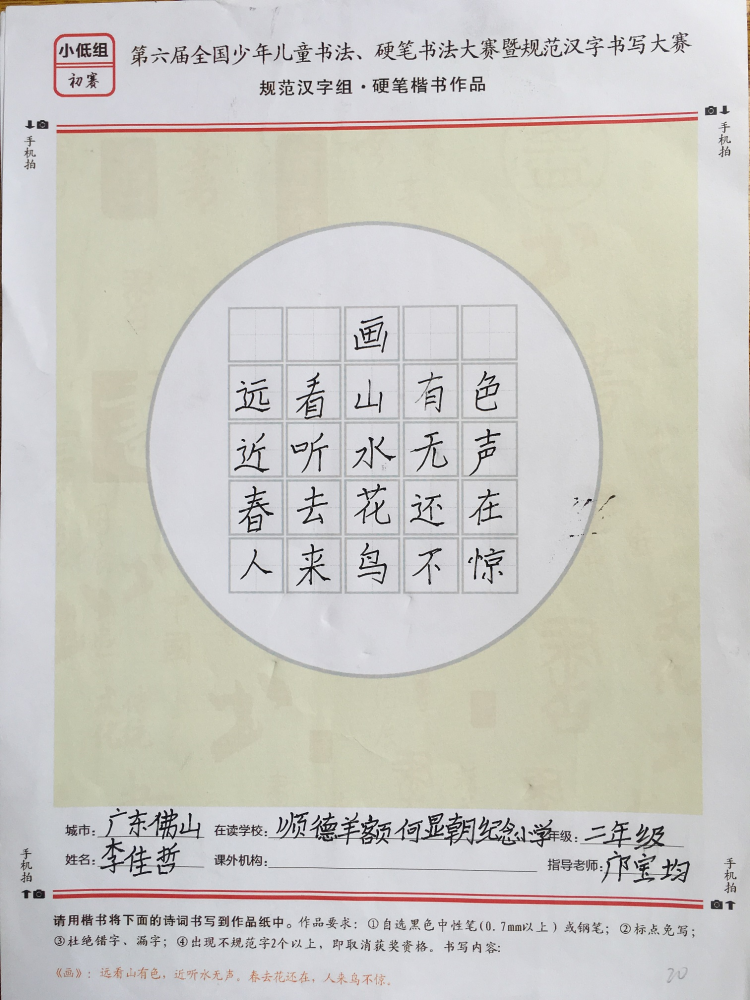 小低组
初赛
第六届全国少年儿童书法、硬笔书法大赛暨规范汉字书写大赛
规范汉字组·硬笔楷书作品
手机拍
手机拍
画
远看山有色
近听水无声
春去花还在
人来鸟不惊
城市：广东佛山 在读学校：顺德羊额何显朝纪念小学 年级：二年级
姓名：李佳哲 课外机构： 指导老师：邝宝均
手机拍
手机拍
请用楷书将下面的诗词书写到作品纸中。作品要求：①自选黑色中性笔(0.7mm以上)或钢笔；②标点免写；
③杜绝错字、漏字；④出现不规范字2个以上，即取消获奖资格。书写内容：
《画》：远看山有色，近听水无声。春去花还在，人来鸟不惊。
20